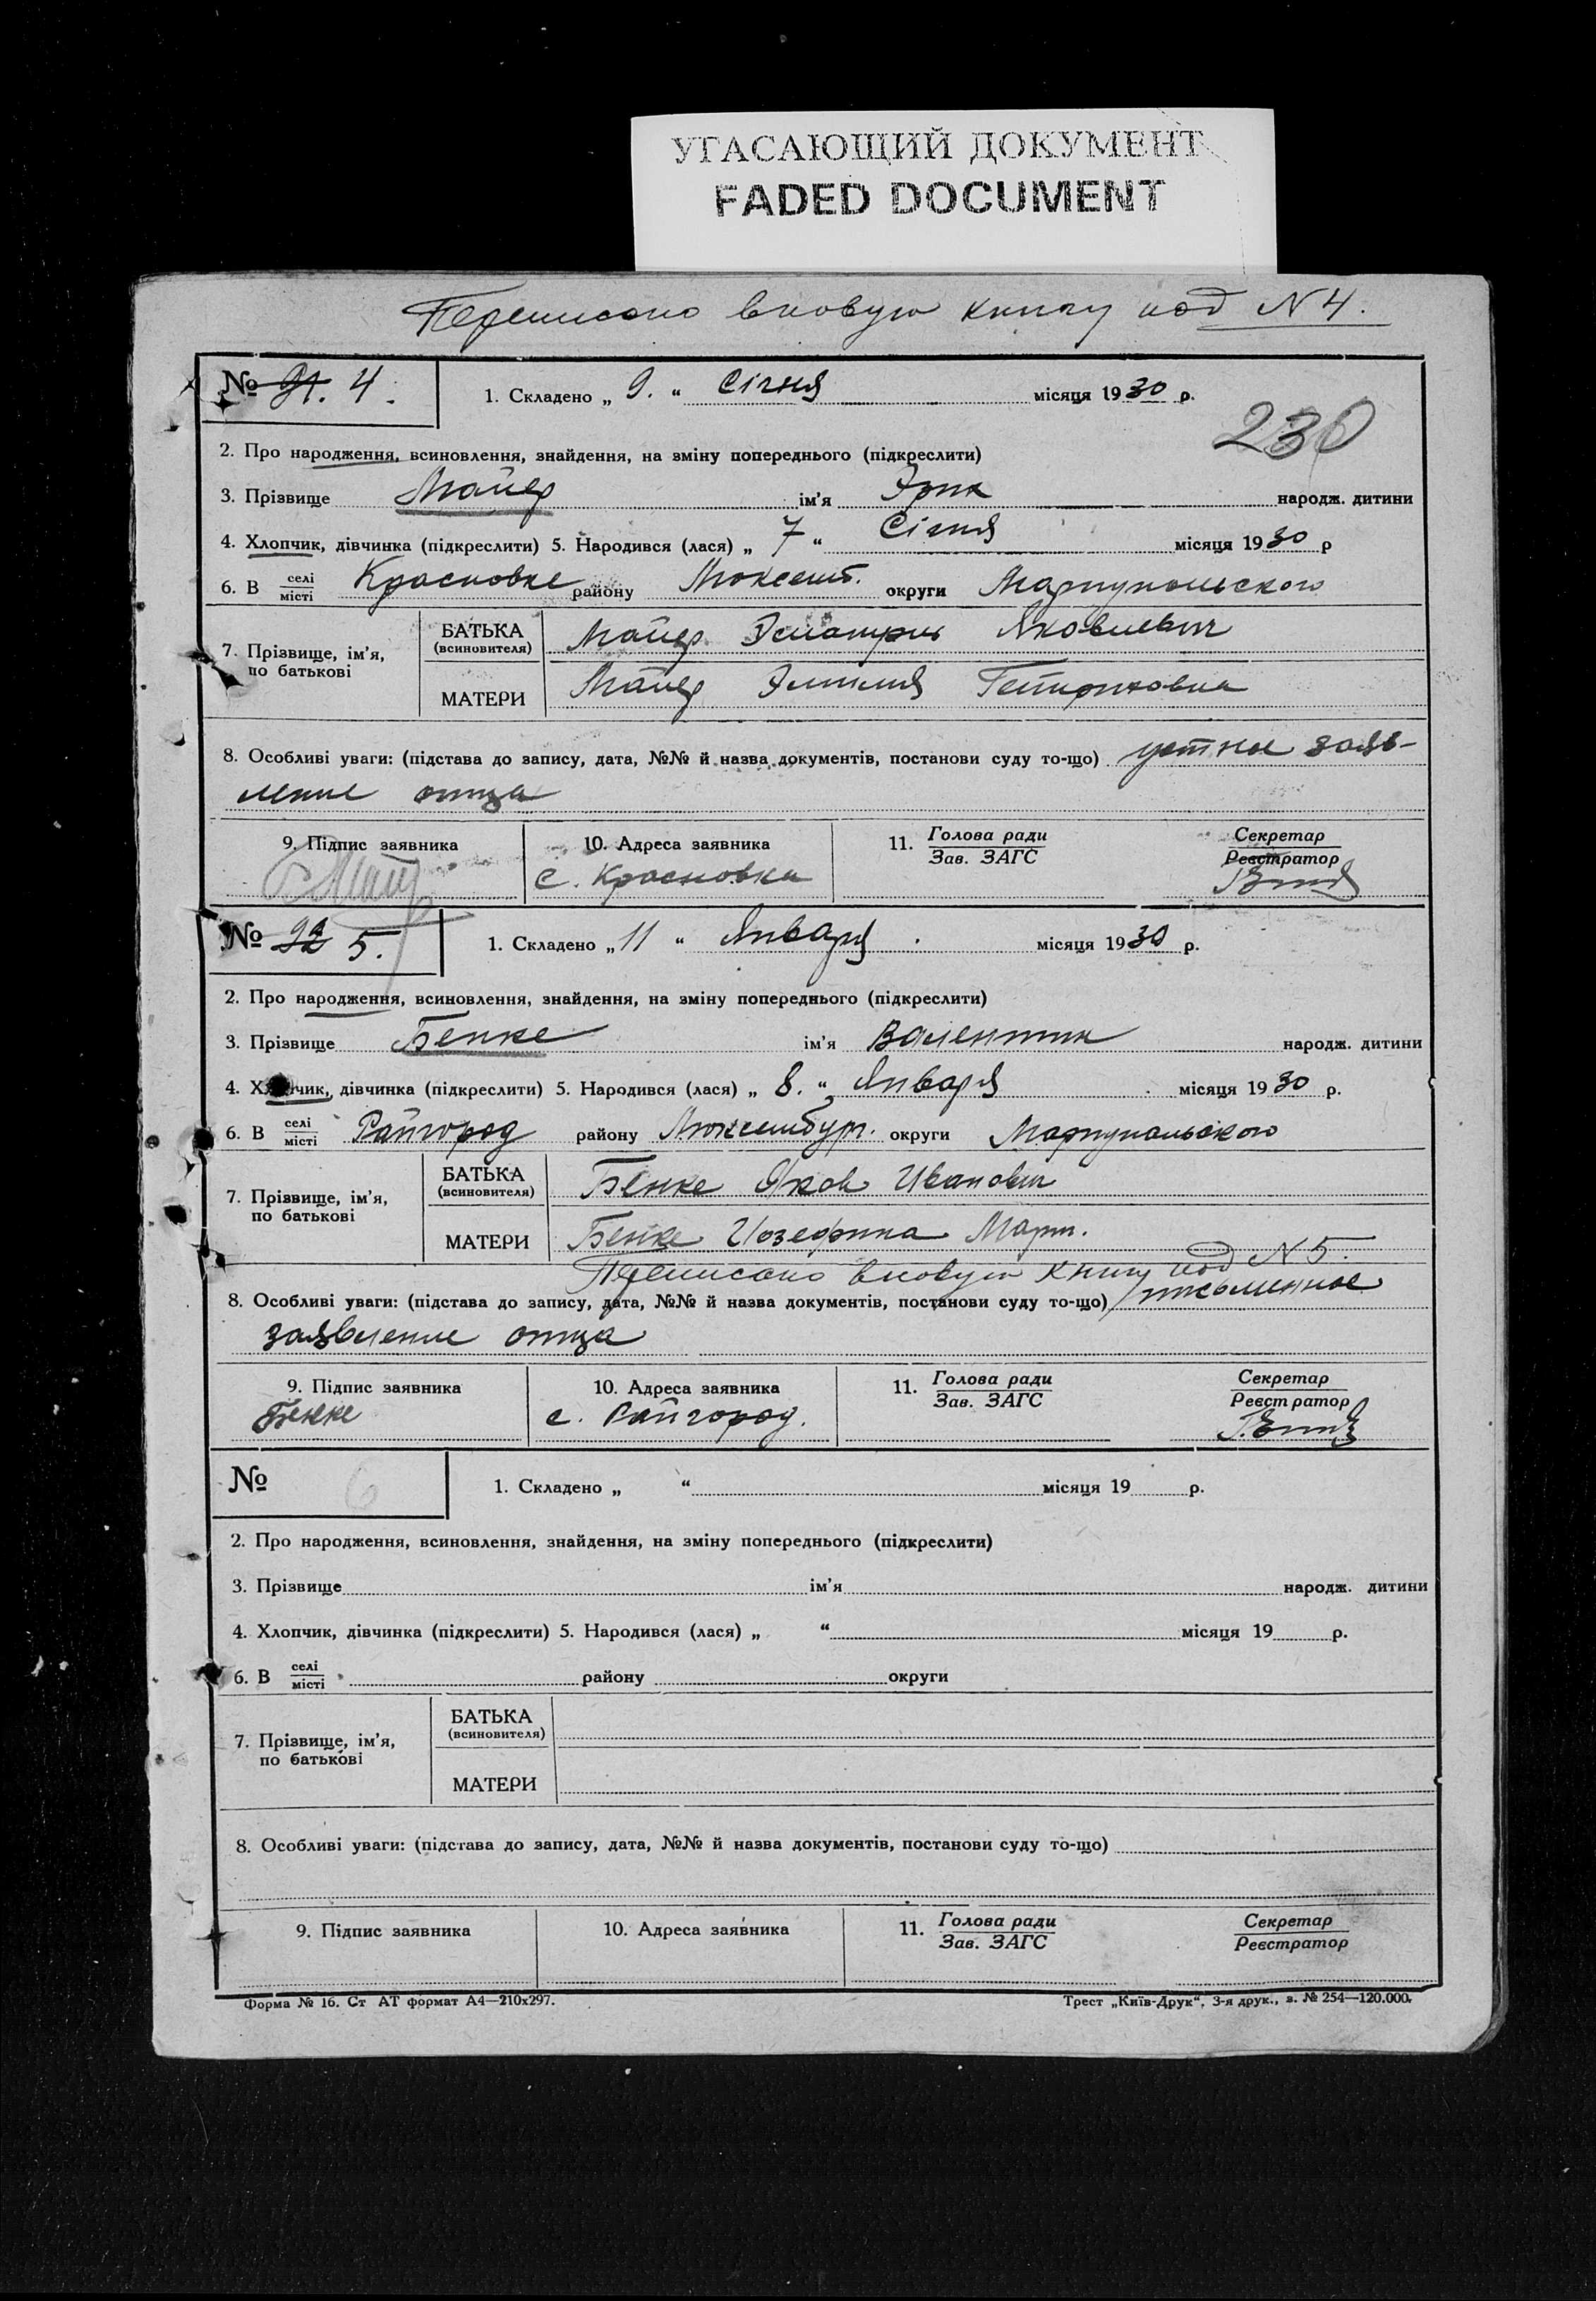 УГАСАЮЩИЙ ДОКУМЕНТ
FADED DOCUMENT
Переписано в новую книгу под N 4.
№ 91. 4. 1. Складено „ 9. “ Січня місяця 1930 р.
230
2. Про народження, всиновлення, знайдення, на зміну попереднього (підкреслити)
3. Прізвище Майер ім’я Эрик народж. дитини
4. Хлопчик, дівчинка (підкреслити) 5. Народився (лася) „ 7 “ Січня місяця 1930 р
6. В селі/місті Красновке району Люксемб. округи Мариупольского
7. Прізвище, ім’я, по батькові
БАТЬКА (всиновителя) Майер Яковлевич
МАТЕРИ Майер Эмилия Генриховна
8. Особливі уваги: (підстава до запису, дата, №№ й назва документів, постанови суду то-що) устное заяв-
ление отца
9. Підпис заявника 10. Адреса заявника 11. Голова ради/Зав. ЗАГС Секретар/Реєстратор
с. Красновка
№ 92 5. 1. Складено „ 11 “ Января місяця 1930 р.
2. Про народження, всиновлення, знайдення, на зміну попереднього (підкреслити)
3. Прізвище Бенке ім’я Валентин народж. дитини
4. Хлопчик, дівчинка (підкреслити) 5. Народився (лася) „ 8. “ Января місяця 1930 р.
6. В селі/місті Райгород району Люксембург. округи Мариупольского
7. Прізвище, ім’я, по батькові
БАТЬКА (всиновителя) Бенке Яков Иванович
МАТЕРИ Бенке Иозефина Март.
Переписано в новую книгу под N 5.
8. Особливі уваги: (підстава до запису, дата, №№ й назва документів, постанови суду то-що) письменное
заявление отца
9. Підпис заявника 10. Адреса заявника 11. Голова ради/Зав. ЗАГС Секретар/Реєстратор
Бенке с. Райгород.
№ 6 1. Складено „ “ місяця 19 р.
2. Про народження, всиновлення, знайдення, на зміну попереднього (підкреслити)
3. Прізвище ім’я народж. дитини
4. Хлопчик, дівчинка (підкреслити) 5. Народився (лася) „ “ місяця 19 р.
6. В селі/місті району округи
7. Прізвище, ім’я, по батькові
БАТЬКА (всиновителя)
МАТЕРИ
8. Особливі уваги: (підстава до запису, дата, №№ й назва документів, постанови суду то-що)
9. Підпис заявника 10. Адреса заявника 11. Голова ради/Зав. ЗАГС Секретар/Реєстратор
Форма № 16. Ст АТ формат А4—210х297. Трест „Київ-Друк“, 3-я друк., з. № 254—120.000.